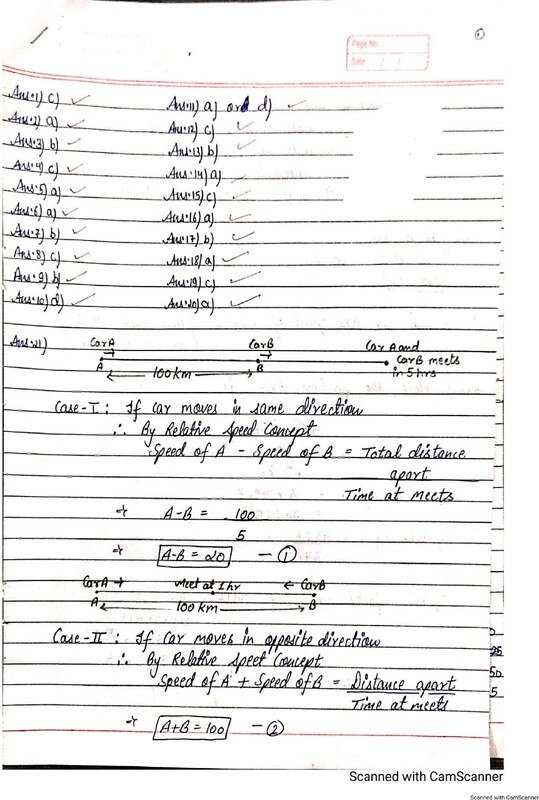 ①
Page No.
Date / /
Ans:1) c) ✓
Ans:2) a) ✓
Ans:3) b) ✓
Ans:4) c) ✓
Ans:5) a) ✓
Ans:6) a) ✓
Ans:7) b) ✓
Ans:8) c) ✓
Ans:9) b) ✓
Ans:10) d) ✓
Ans:11) a) and d) ✓
Ans:12) c) ✓
Ans:13) b) ✓
Ans:14) a) ✓
Ans:15) c) ✓
Ans:16) a) ✓
Ans:17) b) ✓
Ans:18) a) ✓
Ans:19) c) ✓
Ans:20) a) ✓
Ans:21) Car A Car B Car A and
A B Car B meets
100 km in 5 hrs
Case-I : If car moves in same direction
∴ By Relative Speed Concept
Speed of A - Speed of B = Total distance
apart
Time at meets
⇒ A-B = 100
5
⇒ A-B = 20 — ①
Car A → Meet at 1 hr ← Car B
A 100 km B
Case-II : If car moves in opposite direction
∴ By Relative Speet Concept
Speed of A + Speed of B = Distance apart
Time at meets
⇒ A+B = 100 — ②
25
50
5
Scanned with CamScanner
Scanned with CamScanner